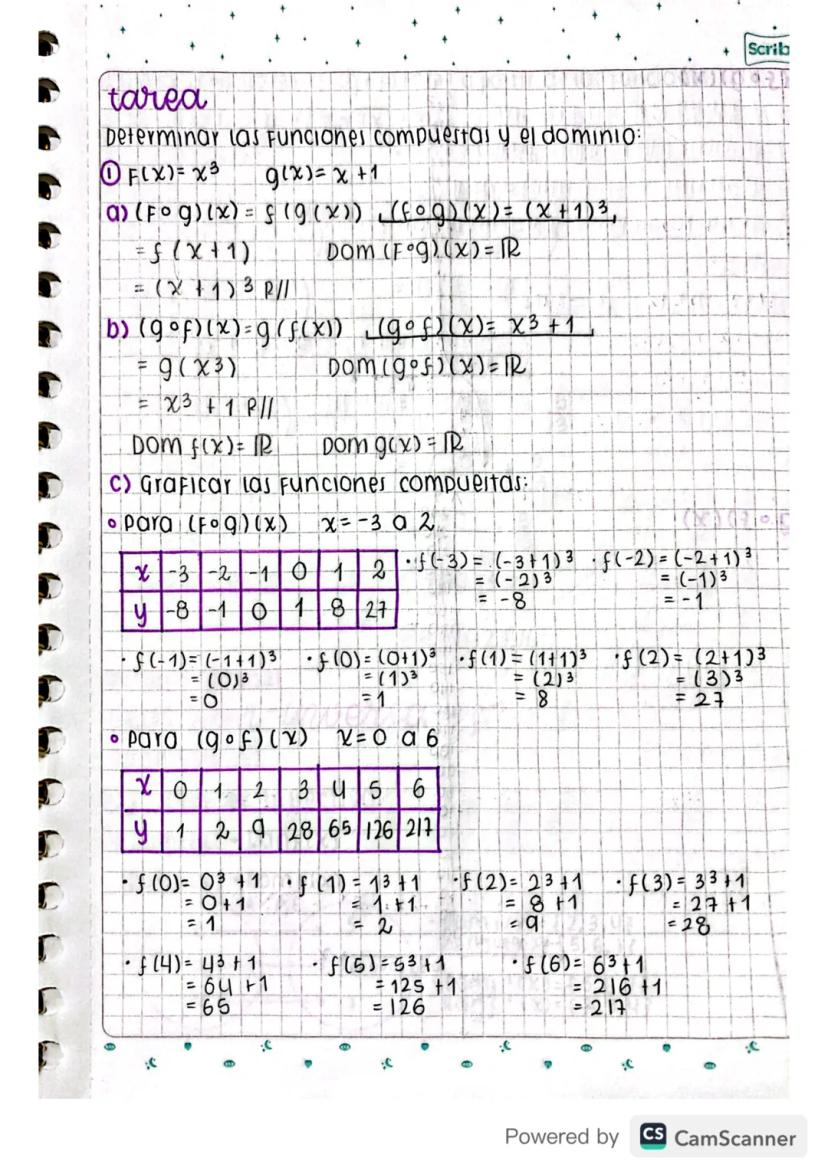 Scrib
tarea
Determinar las funciones compuestas y el dominio:
① F(x)= x³ g(x)= x +1
a) (F∘g)(x) = f(g(x)) (f∘g)(x)= (x+1)³
= f(x+1) Dom (F∘g)(x) = ℝ
= (x+1)³ R//
b) (g∘f)(x)=g(f(x)) (g∘f)(x)= x³+1
= g(x³) Dom(g∘f)(x)=ℝ
= x³ +1 R//
Dom f(x)= ℝ Dom g(x) = ℝ
c) Graficar las funciones compuestas:
∘ Para (F∘g)(x) x= -3 a 2
x -3 -2 -1 0 1 2
y -8 -1 0 1 8 27
· f(-3) = (-3+1)³ · f(-2) = (-2+1)³
= (-2)³ = (-1)³
= -8 = -1
· f(-1)= (-1+1)³ · f(0)= (0+1)³ · f(1) = (1+1)³ · f(2) = (2+1)³
= (0)³ = (1)³ = (2)³ = (3)³
= 0 = 1 = 8 = 27
∘ Para (g∘f)(x) x=0 a 6
x 0 1 2 3 4 5 6
y 1 2 9 28 65 126 217
· f(0)= 0³ +1 · f(1) = 1³+1 · f(2)= 2³+1 · f(3) = 3³+1
= 0+1 = 1+1 = 8 +1 = 27 +1
= 1 = 2 = 9 = 28
· f(4)= 4³+1 · f(5)=5³+1 · f(6)= 6³+1
= 64 +1 = 125 +1 = 216 +1
= 65 = 126 = 217
Powered by CS CamScanner